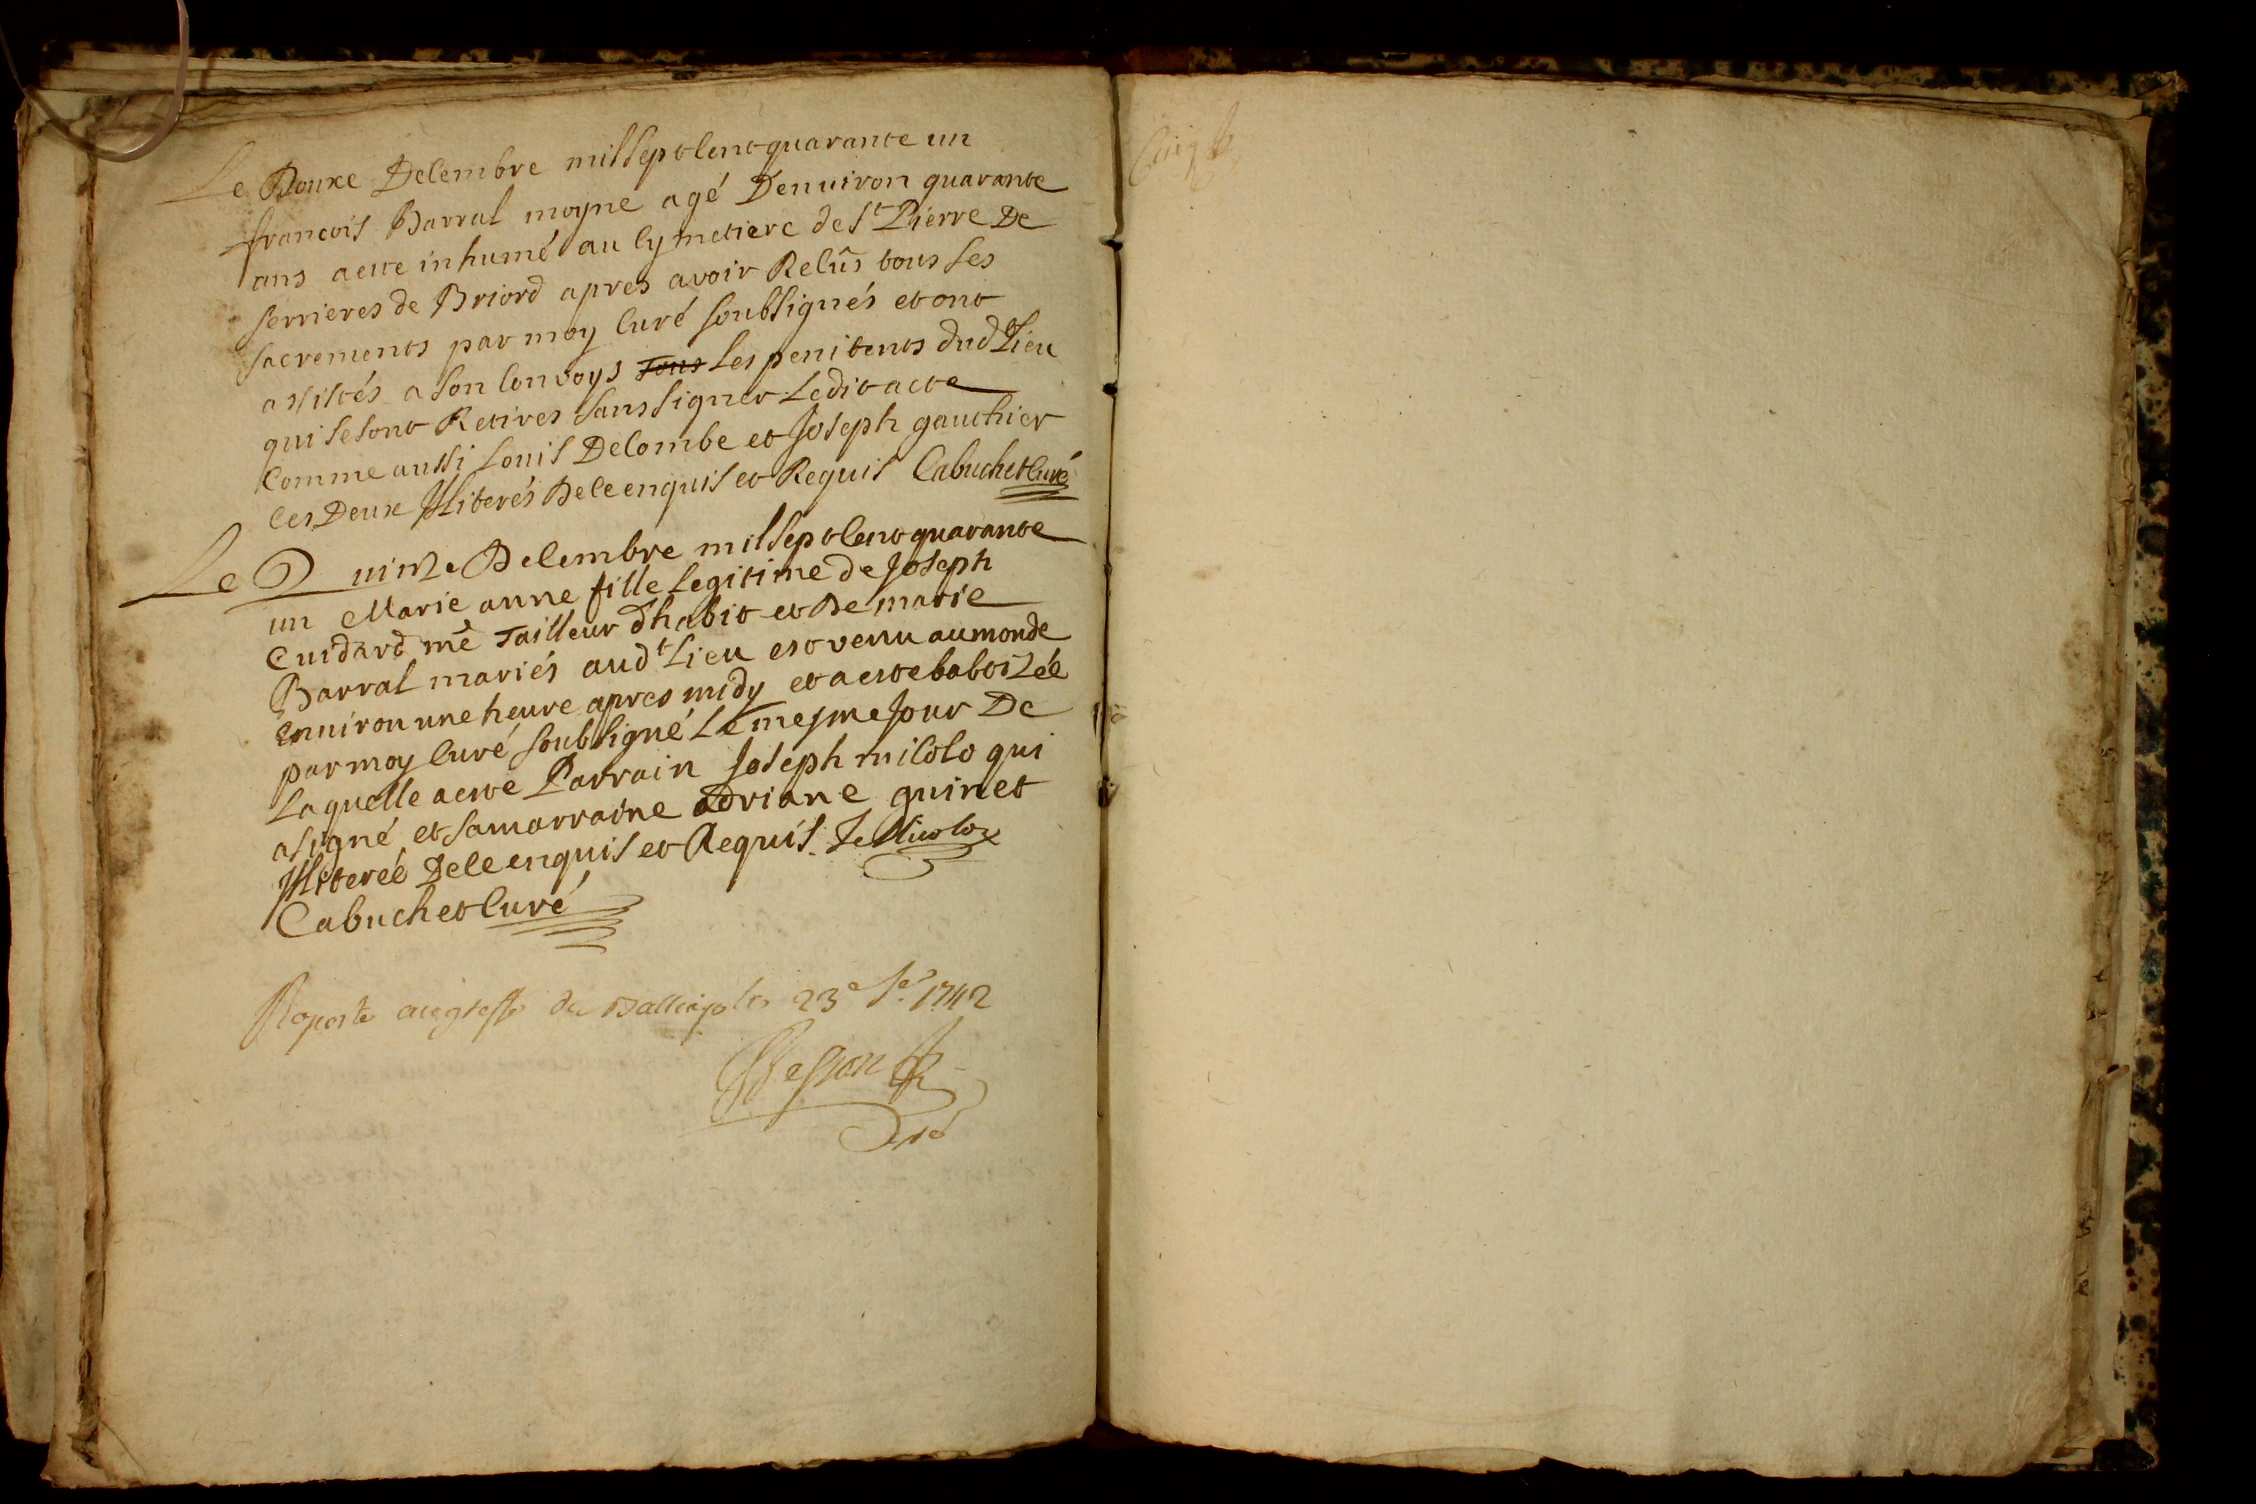 Le Douxe Decembre mil sept cent quarante un
francois Barral moyne agé Denuiron quarante
ans a ette inhumé au Cymetiere de st Pierre De
serrieres de Briord apres avoir Reçûs tous ses
sacrements par moy Curé soubsignés et ont
assistés a son Convoys tous les penitents dudt Lieu
qui se sont Retires sans signer Ledit acte
Comme aussi Louis Decombe et Joseph gauthier
Ces Deux Illiterés De ce enquis et Requis Cabuchet Curé
Le Quinze Decembre mil sept Cent quarante
un Marie anne fille Legitime de Joseph
Cuidard me Tailleur d'habit et De marie
Barral mariés audt Lieu est venu au monde
Enuiron une heure apres midy et a este babtizéé
par moy Curé soubsigné Le mesme Jour De
Laquelle a este Parrain Joseph micolo qui
a signé et sa marraine adriane guinet
Illiteréé De ce enquis et Requis. Je Micoloz
Cabuchet Curé
Raporté au greffe de Balliage le 23e 1742
Besson